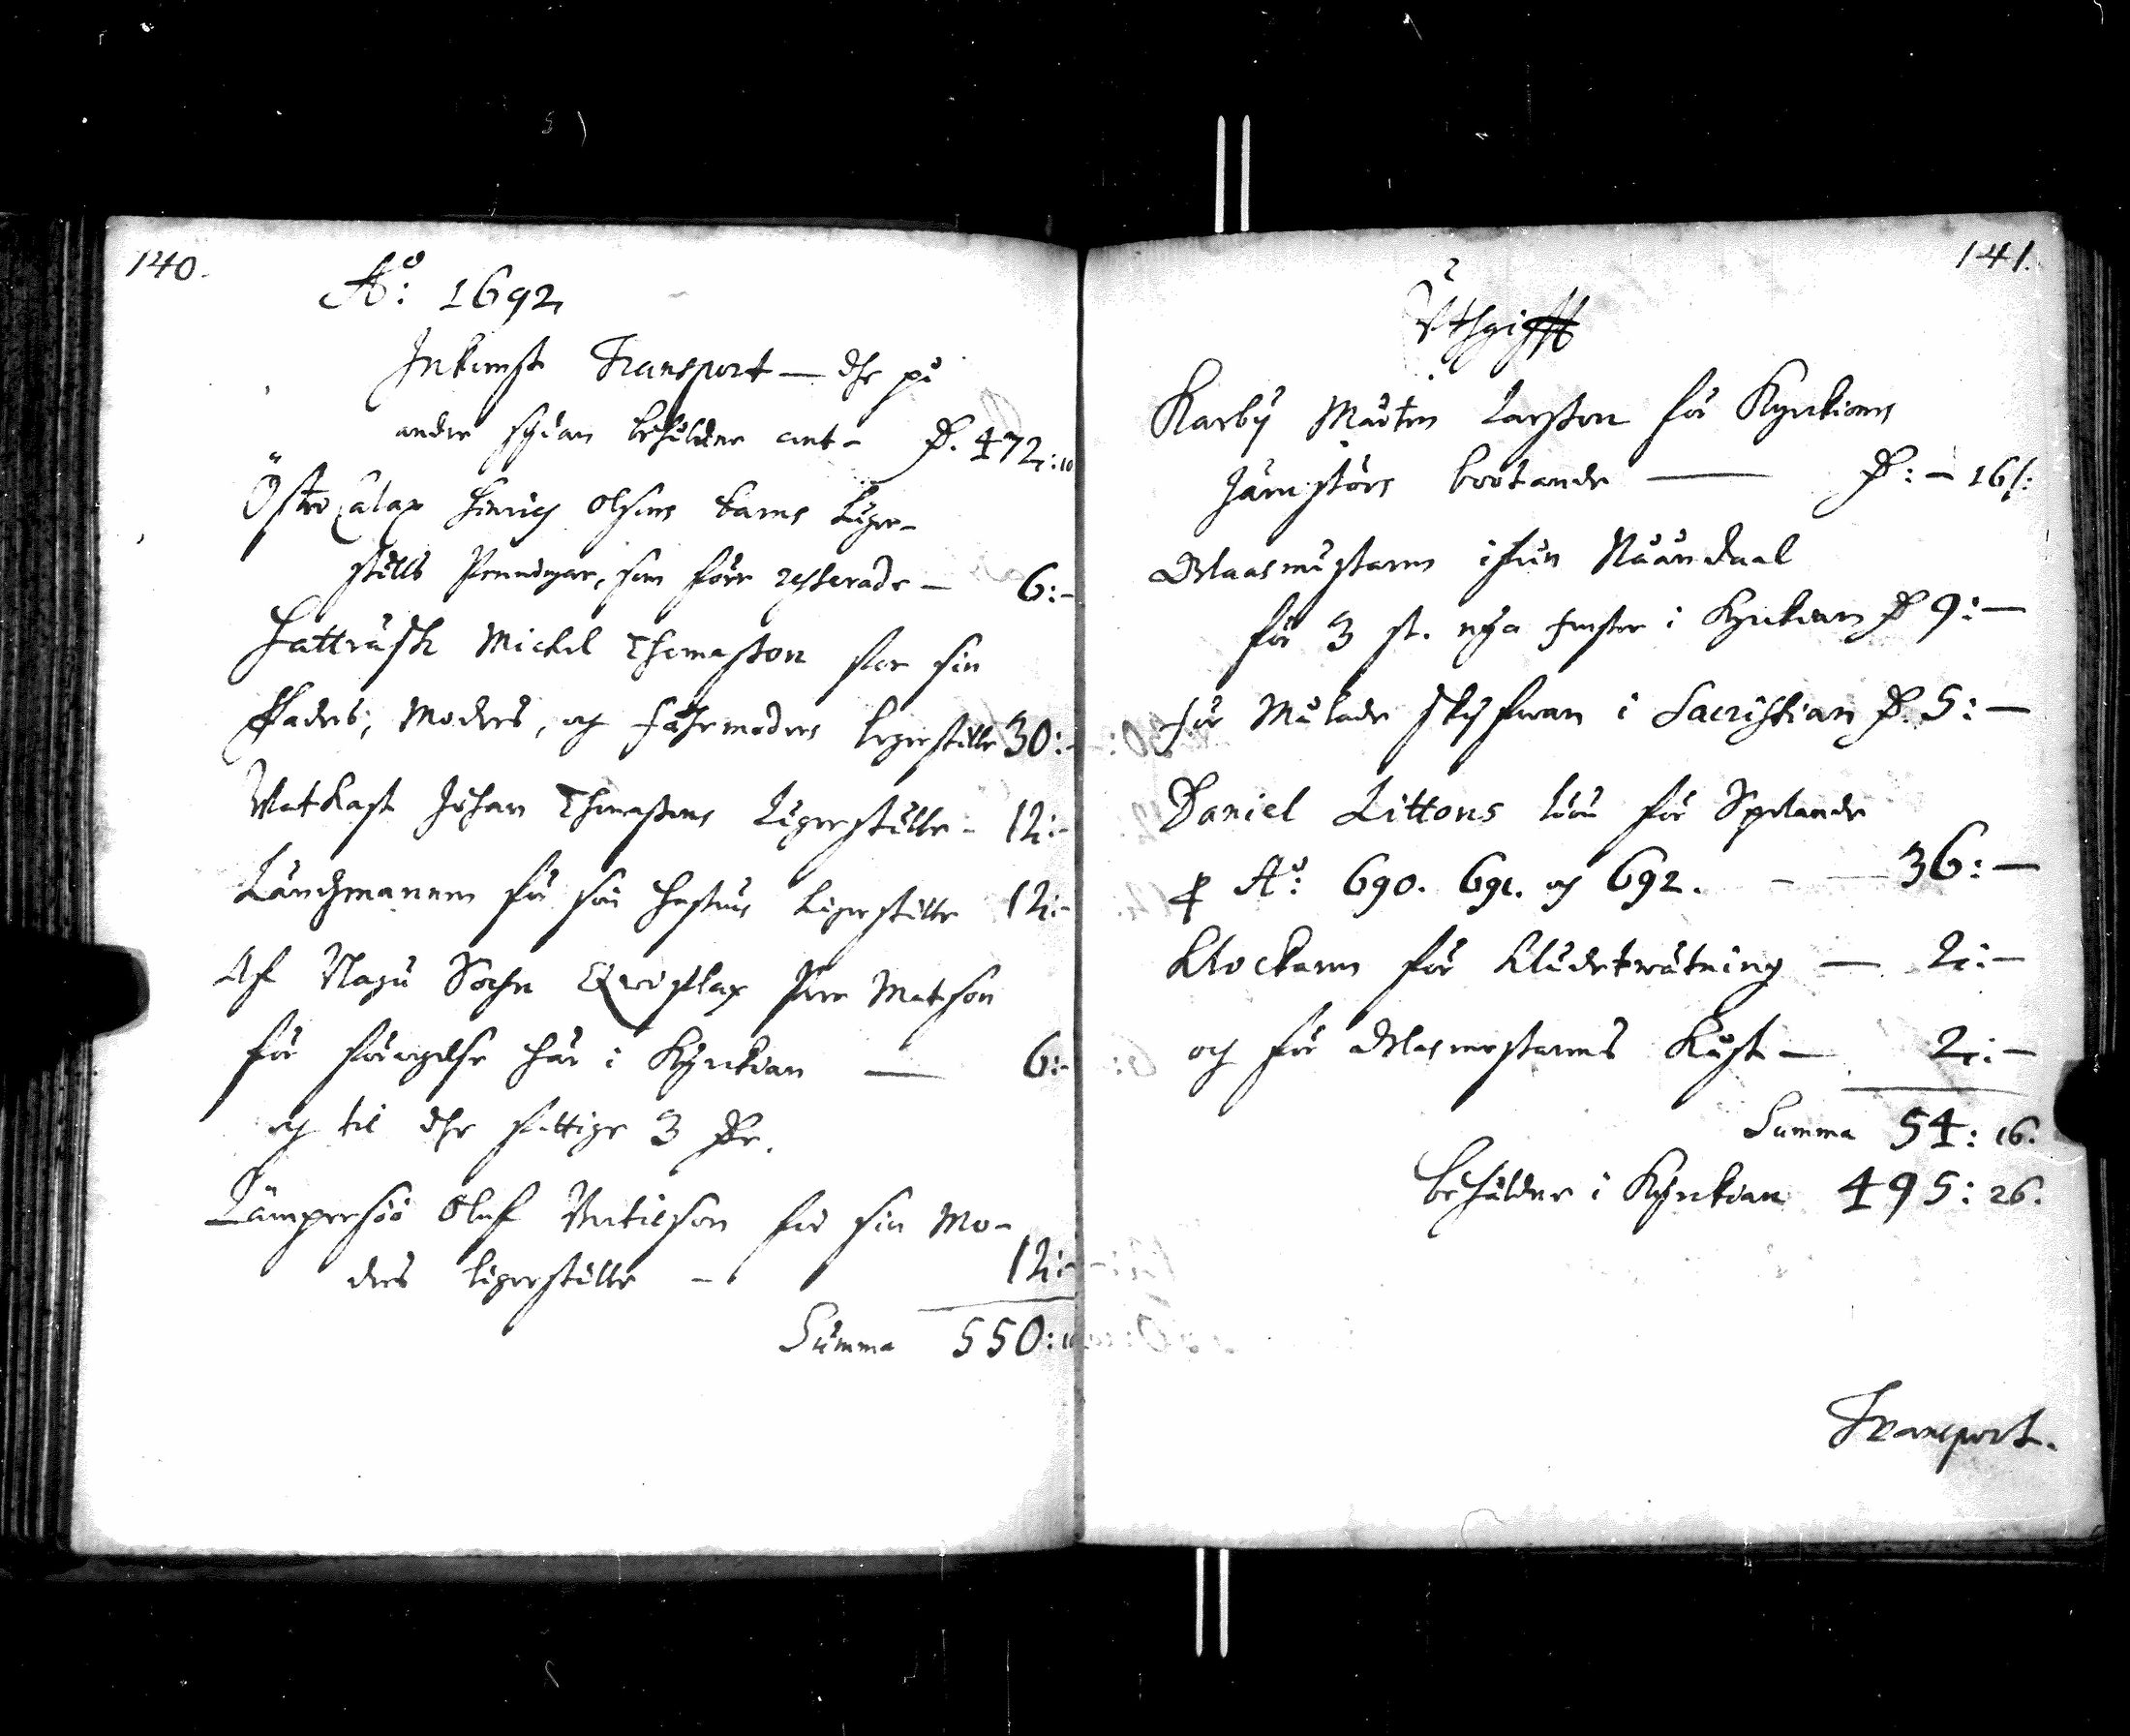 140.
Aº: 1692
Inkomst Transport — dhe på
andre sijdan behåldne äret - D. 472:10
Östro Lalax Hinrich Olssons barns läger-
ställs Penningar, som förr resterade — 6:-
Hattrusk Michel Thomasson för sin
Faders, Moders, och Fahrmoders legerställe 30:-
Vatkast Johan Thomassons Lägerställe - 12:-
Länchmannen för sin hustrus lägerställe 12:-
Af Nagu Sochn Qvisslax Per Matsson
för föräringelse här i Kyrkian — 6:-
och til dhe fattige 3 D.
Lämpersöö Oluf Bertilson för sin Mo-
ders lägerställe - 12:-
Summa 550:10
141.
Uthgifft
Karby Mårten Larsson för Kyrkions
Järnstörs bootande — D: - 16 s:
Glaasmästaren ifrån Nåån daal
för 3 st. nya fenster i Kyrkian D 9:—
för Målade skifwan i Sacristian D. 5:—
Daniel Littons löön för Spelande
p Aº: 690. 691. och 692. - — 36:—
Klockarn för Klädetwätning — 2:—
och för Glasmestarens Kost — 2:—
Summa 54: 16.
behåldne i Kyrkian 495: 26.
Transport.